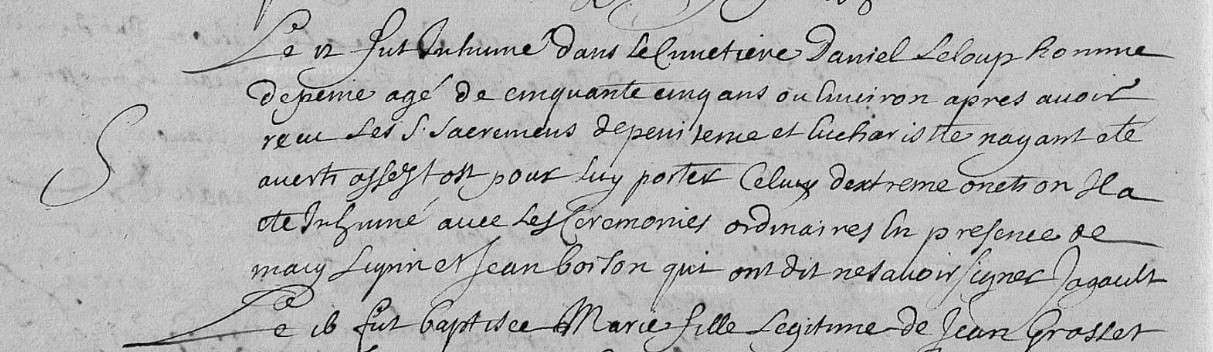 Le 12 fut Inhumé dans le Cimetiere Daniel Leloup homme
depeine agé de cinquante cinq ans ou Environ apres avoir
receu Les S. Sacremens depenitence et Eucharistie nayant ete
averti assez tost pour luy porter Celuy dextreme onction Il a
ete Inhumé avec Les Ceremonies ordinaires En presence de
Jean boison qui ont dit ne savoir signer Jagault
Le 16 fut baptisee Marie fille Legitime de Jean Grosset